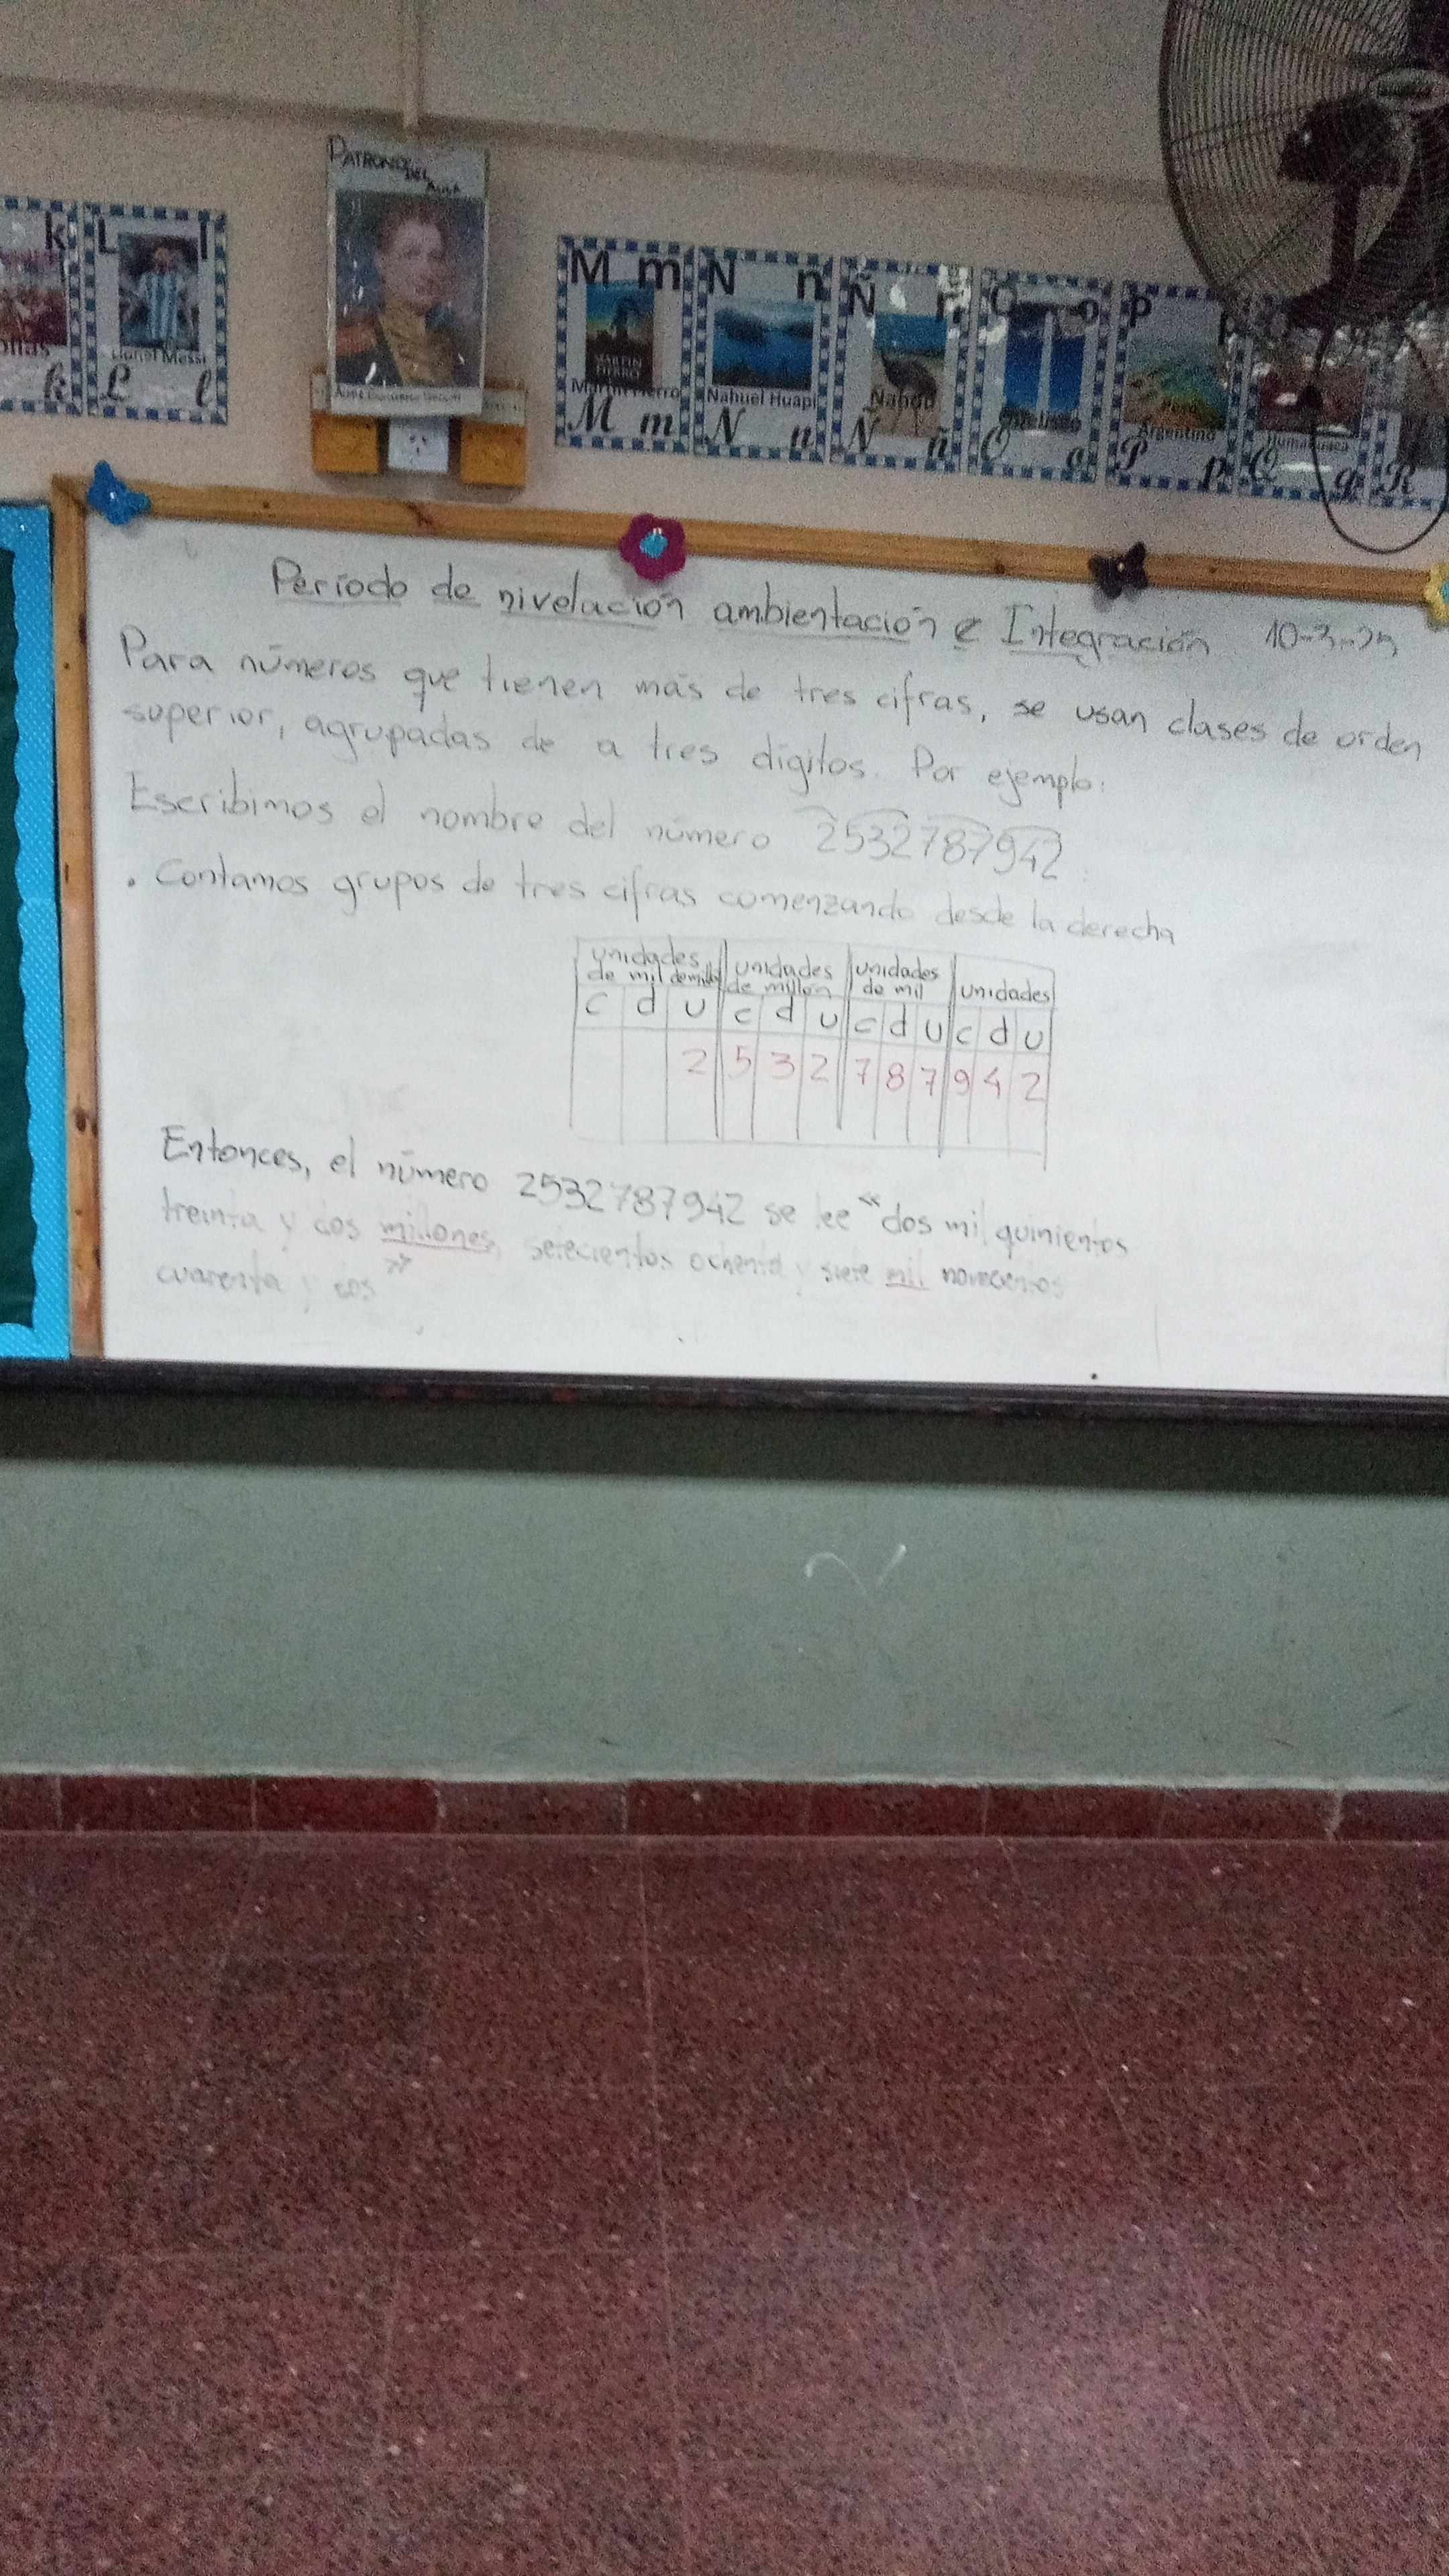 PATRONO DEL AULA
k L l
Lionel Messi
k L l
M m N n Ñ ñ O o P p
MARTIN FIERRO
Martín Fierro Nahuel Huapi Ñandú Obelisco Argentina Humahuaca
M m N n Ñ ñ O o P p Q q R
Período de nivelación ambientación e Integración 10-3-25
Para números que tienen más de tres cifras, se usan clases de orden
superior, agrupadas de a tres dígitos. Por ejemplo:
Escribimos el nombre del número 2532787942
. Contamos grupos de tres cifras comenzando desde la derecha
unidades de mil de millón unidades de millón unidades de mil unidades
c d u c d u c d u c d u
2 5 3 2 7 8 7 9 4 2
Entonces, el número 2532787942 se lee "dos mil quinientos
treinta y dos millones, setecientos ochenta y siete mil novecientos
cuarenta y dos"